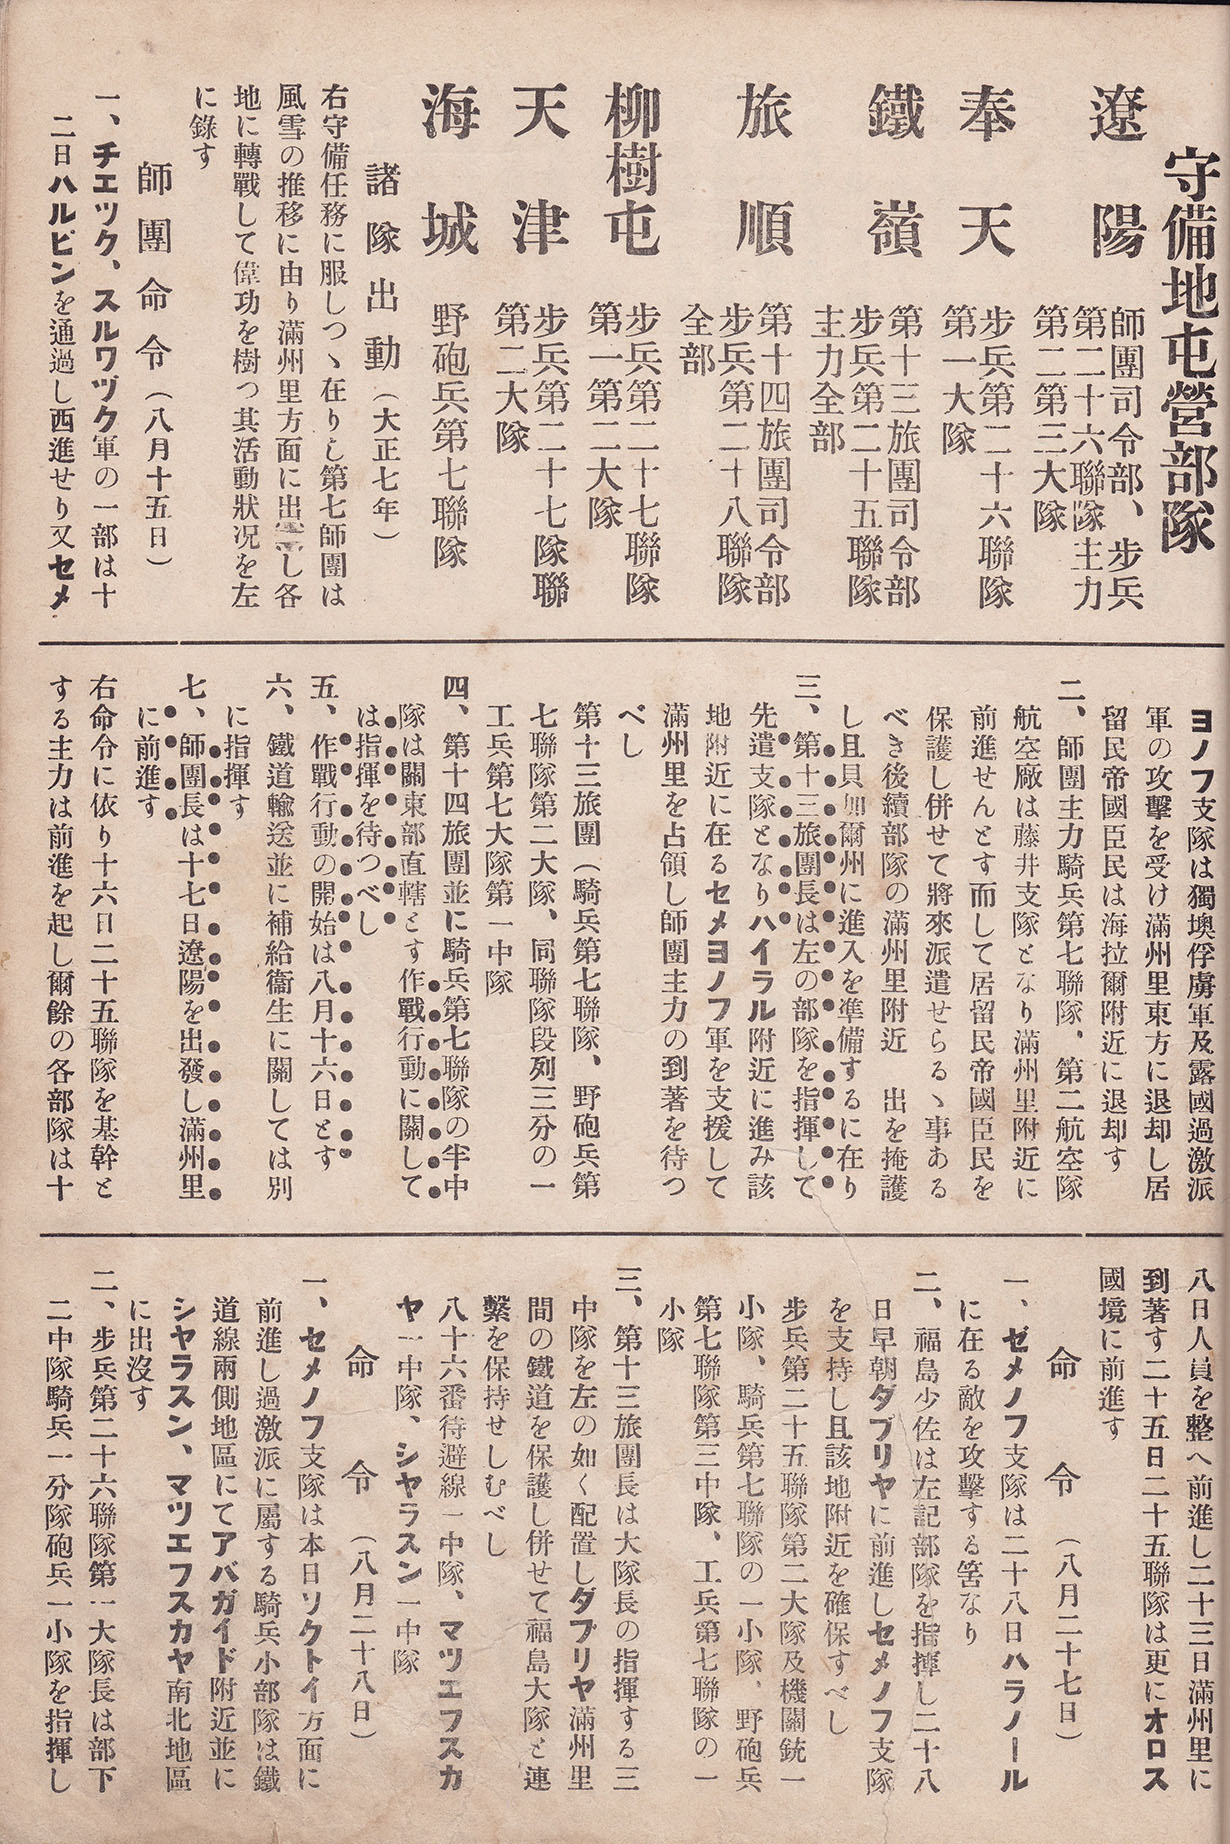 守備地屯營部隊
遼陽
師團司令部、步兵
第二十六聯隊主力
第二第三大隊
奉天
步兵第二十六聯隊
第一大隊
鐵嶺
第十三旅團司令部
步兵第二十五聯隊
主力全部
旅順
第十四旅團司令部
步兵第二十八聯隊
全部
柳樹屯
步兵第二十七聯隊
第一第二大隊
天津
步兵第二十七隊聯
第二大隊
海城
野砲兵第七聯隊
諸隊出動（大正七年）
右守備任務に服しつゝ在りし第七師團は
風雪の推移に由り滿州里方面に出し各
地に轉戰して偉功を樹つ其活動狀况を左
に錄す
師團命令（八月十五日）
一、チエツク、スルワヅク軍の一部は十
二日ハルビンを通過し西進せり又セメ
ヨノフ支隊は獨墺俘虜軍及露國過激派
軍の攻擊を受け滿州里東方に退却し居
留民帝國臣民は海拉爾附近に退却す
二、師團主力騎兵第七聯隊、第二航空隊
航空廠は藤井支隊となり滿州里附近に
前進せんとす而して居留民帝國臣民を
保護し併せて將來派遣せらるゝ事ある
べき後續部隊の滿州里附近　出を掩護
し且貝加爾州に進入を準備するに在り
三、第十三旅團長は左の部隊を指揮して
先遣支隊となりハイラル附近に進み該
地附近に在るセメヨノフ軍を支援して
滿州里を占領し師團主力の到著を待つ
べし
第十三旅團（騎兵第七聯隊、野砲兵第
七聯隊第二大隊、同聯隊段列三分の一
工兵第七大隊第一中隊
四、第十四旅團並に騎兵第七聯隊の半中
隊は關東部直轄とす作戰行動に關して
は指揮を待つべし
五、作戰行動の開始は八月十六日とす
六、鐵道輸送並に補給衞生に關しては別
に指揮す
七、師團長は十七日遼陽を出發し滿州里
に前進す
右命令に依り十六日二十五聯隊を基幹と
する主力は前進を起し爾餘の各部隊は十
八日人員を整へ前進し二十三日滿州里に
到著す二十五日二十五聯隊は更にオロス
國境に前進す
命令（八月二十七日）
一、ゼメノフ支隊は二十八日ハラノール
に在る敵を攻擊する筈なり
二、福島少佐は左記部隊を指揮し二十八
日早朝ダブリヤに前進しセメノフ支隊
を支持し且該地附近を確保すべし
步兵第二十五聯隊第二大隊及機關銃一
小隊、騎兵第七聯隊の一小隊、野砲兵
第七聯隊第三中隊、工兵第七聯隊の一
小隊
三、第十三旅團長は大隊長の指揮する三
中隊を左の如く配置しダブリヤ滿州里
間の鐵道を保護し併せて福島大隊と連
繫を保持せしむべし
八十六番待避線一中隊、マツエフスカ
ヤ一中隊、シヤラスン一中隊
命令（八月二十八日）
一、セメノフ支隊は本日ソクトイ方面に
前進し過激派に屬する騎兵小部隊は鐵
道線兩側地區にてアバガイド附近並に
シヤラスン、マツエフスカヤ南北地區
に出沒す
二、步兵第二十六聯隊第一大隊長は部下
二中隊騎兵一分隊砲兵一小隊を指揮し